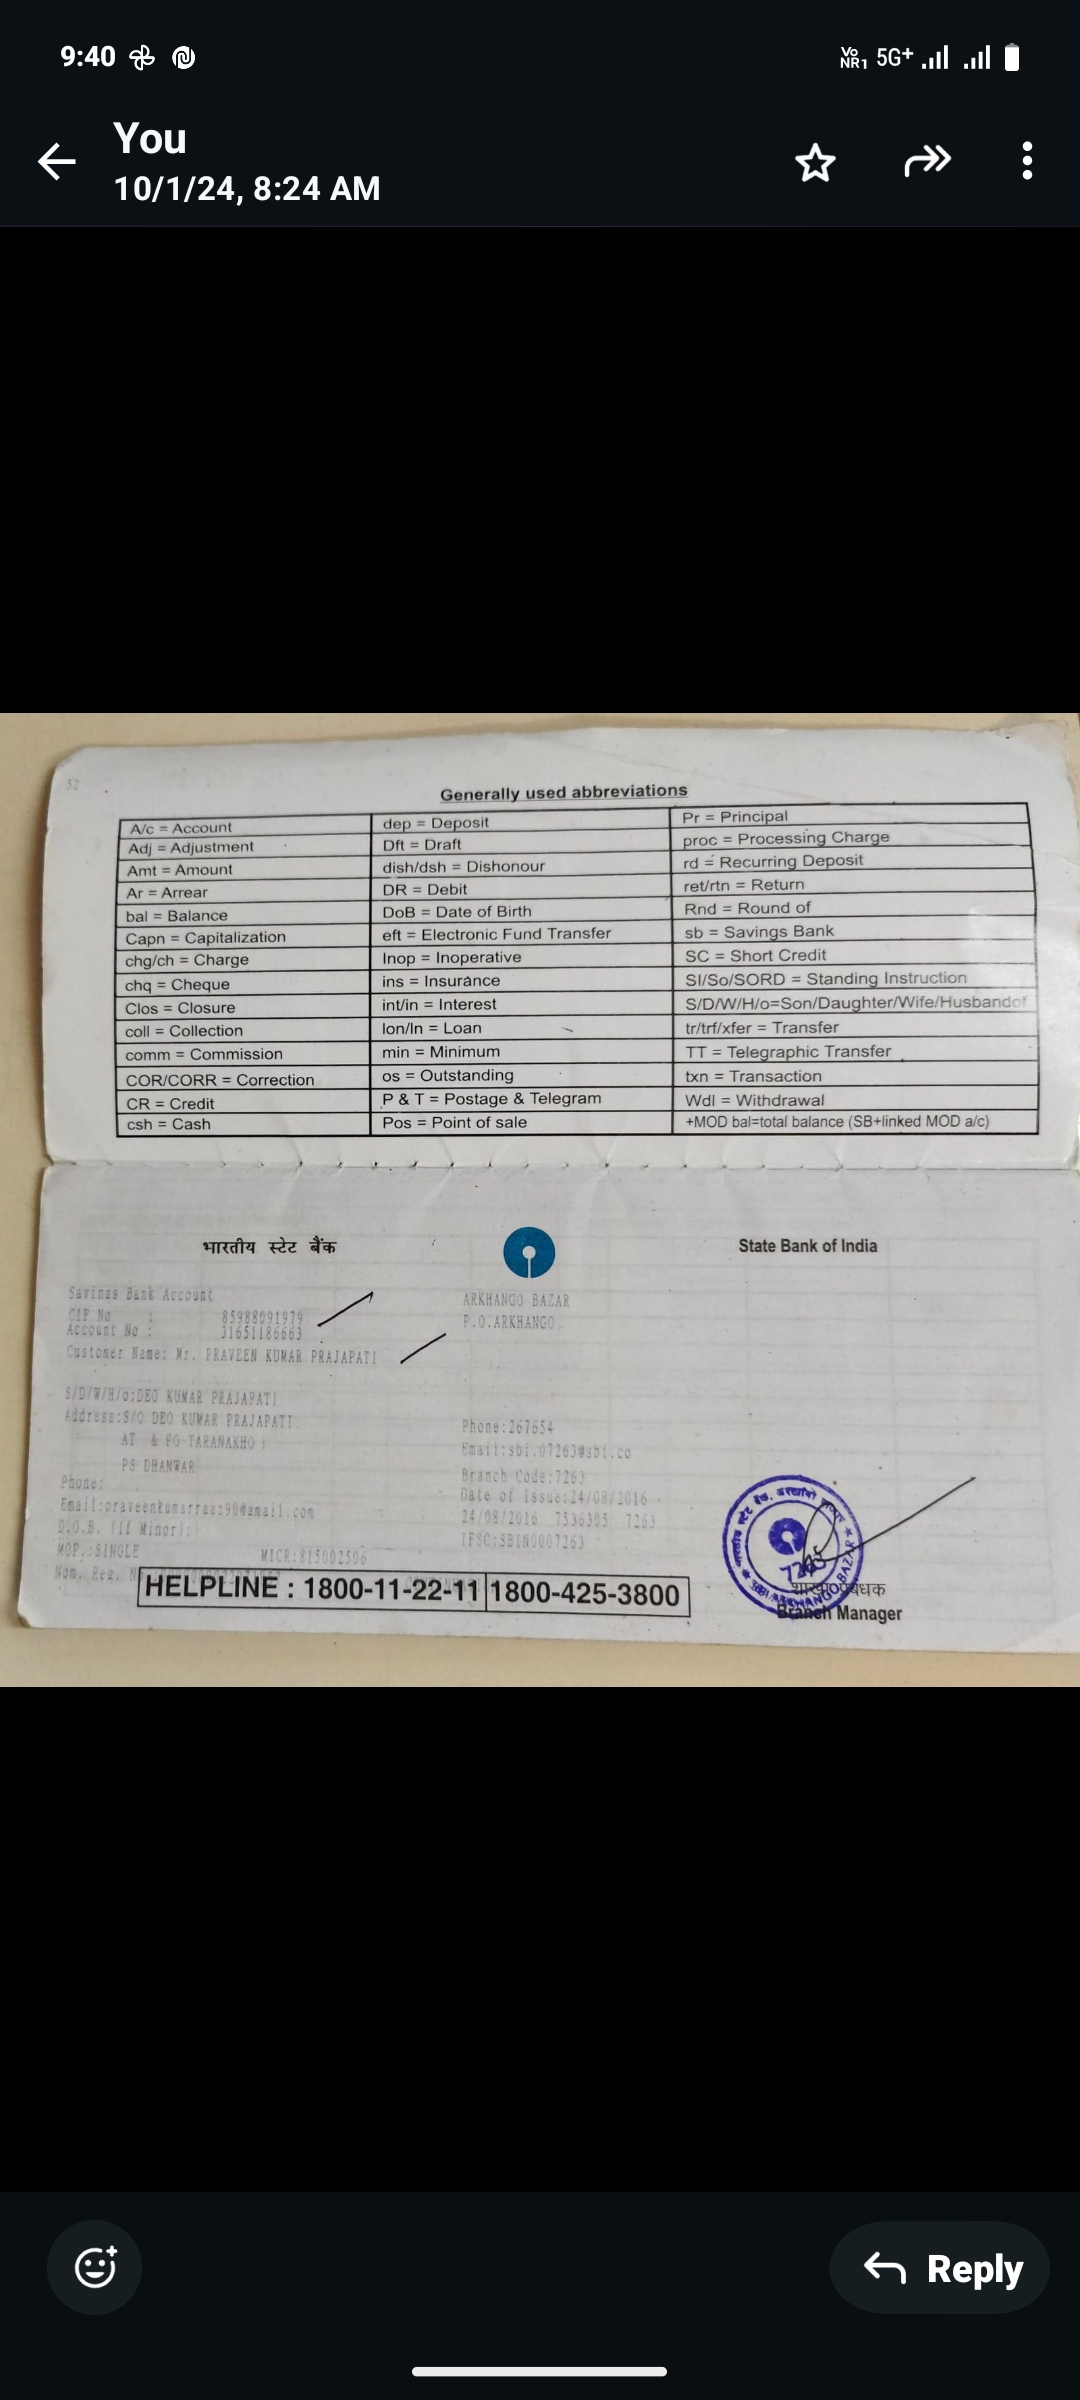 9:40
Vo NR1 5G+
You
10/1/24, 8:24 AM
52
Generally used abbreviations
A/c = Account dep = Deposit Pr = Principal
Adj = Adjustment Dft = Draft proc = Processing Charge
Amt = Amount dish/dsh = Dishonour rd = Recurring Deposit
Ar = Arrear DR = Debit ret/rtn = Return
bal = Balance DoB = Date of Birth Rnd = Round of
Capn = Capitalization eft = Electronic Fund Transfer sb = Savings Bank
chg/ch = Charge Inop = Inoperative SC = Short Credit
chq = Cheque ins = Insurance SI/So/SORD = Standing Instruction
Clos = Closure int/in = Interest S/D/W/H/o=Son/Daughter/Wife/Husbandof
coll = Collection lon/ln = Loan tr/trf/xfer = Transfer
comm = Commission min = Minimum TT = Telegraphic Transfer
COR/CORR = Correction os = Outstanding txn = Transaction
CR = Credit P & T = Postage & Telegram Wdl = Withdrawal
csh = Cash Pos = Point of sale +MOD bal=total balance (SB+linked MOD a/c)
भारतीय स्टेट बैंक State Bank of India
Savings Bank Account ARKHANGO BAZAR
CIF No : 85988091979 P.O.ARKHANGO
Account No : 31651186663
Customer Name: Mr. PRAVEEN KUMAR PRAJAPATI
S/D/W/H/o:DEO KUMAR PRAJAPATI
Address:S/O DEO KUMAR PRAJAPATI Phone:267654
AT & PO TARANAKHO Email:sbi.07263@sbi.co
PS DHANWAR Branch Code:7263
Phone: Date of Issue:24/08/2016
Email:praveenkumarraaz90@gmail.com 24/08/2016 7536305 7263
D.O.B. (If Minor): IFSC:SBIN0007263
MOP.:SINGLE MICR:815002506
Nom. Reg. No
HELPLINE : 1800-11-22-11 1800-425-3800
SBI ARKHANGO BAZAR
शाखा प्रबंधक
Branch Manager
Reply